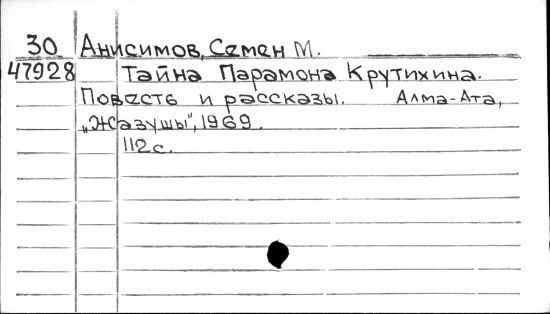 30 Анисимов, Семен М.
47928 Тайна Парамона Крутихина.
Повесть и рассказы. Алма-Ата,
„Жазушы", 1969.
112 с.